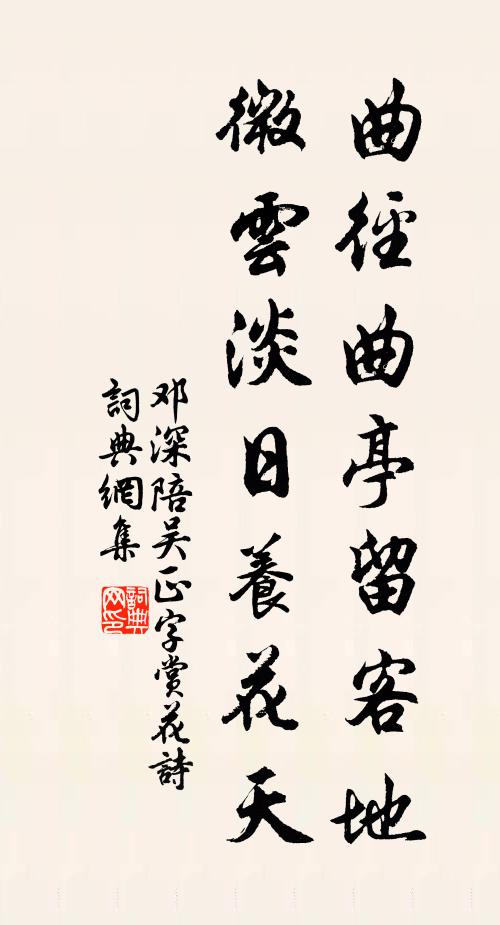 曲徑曲亭留客地
微雲淡日養花天
邓深陪吴正字赏花詩
詞典網集
詞典网印